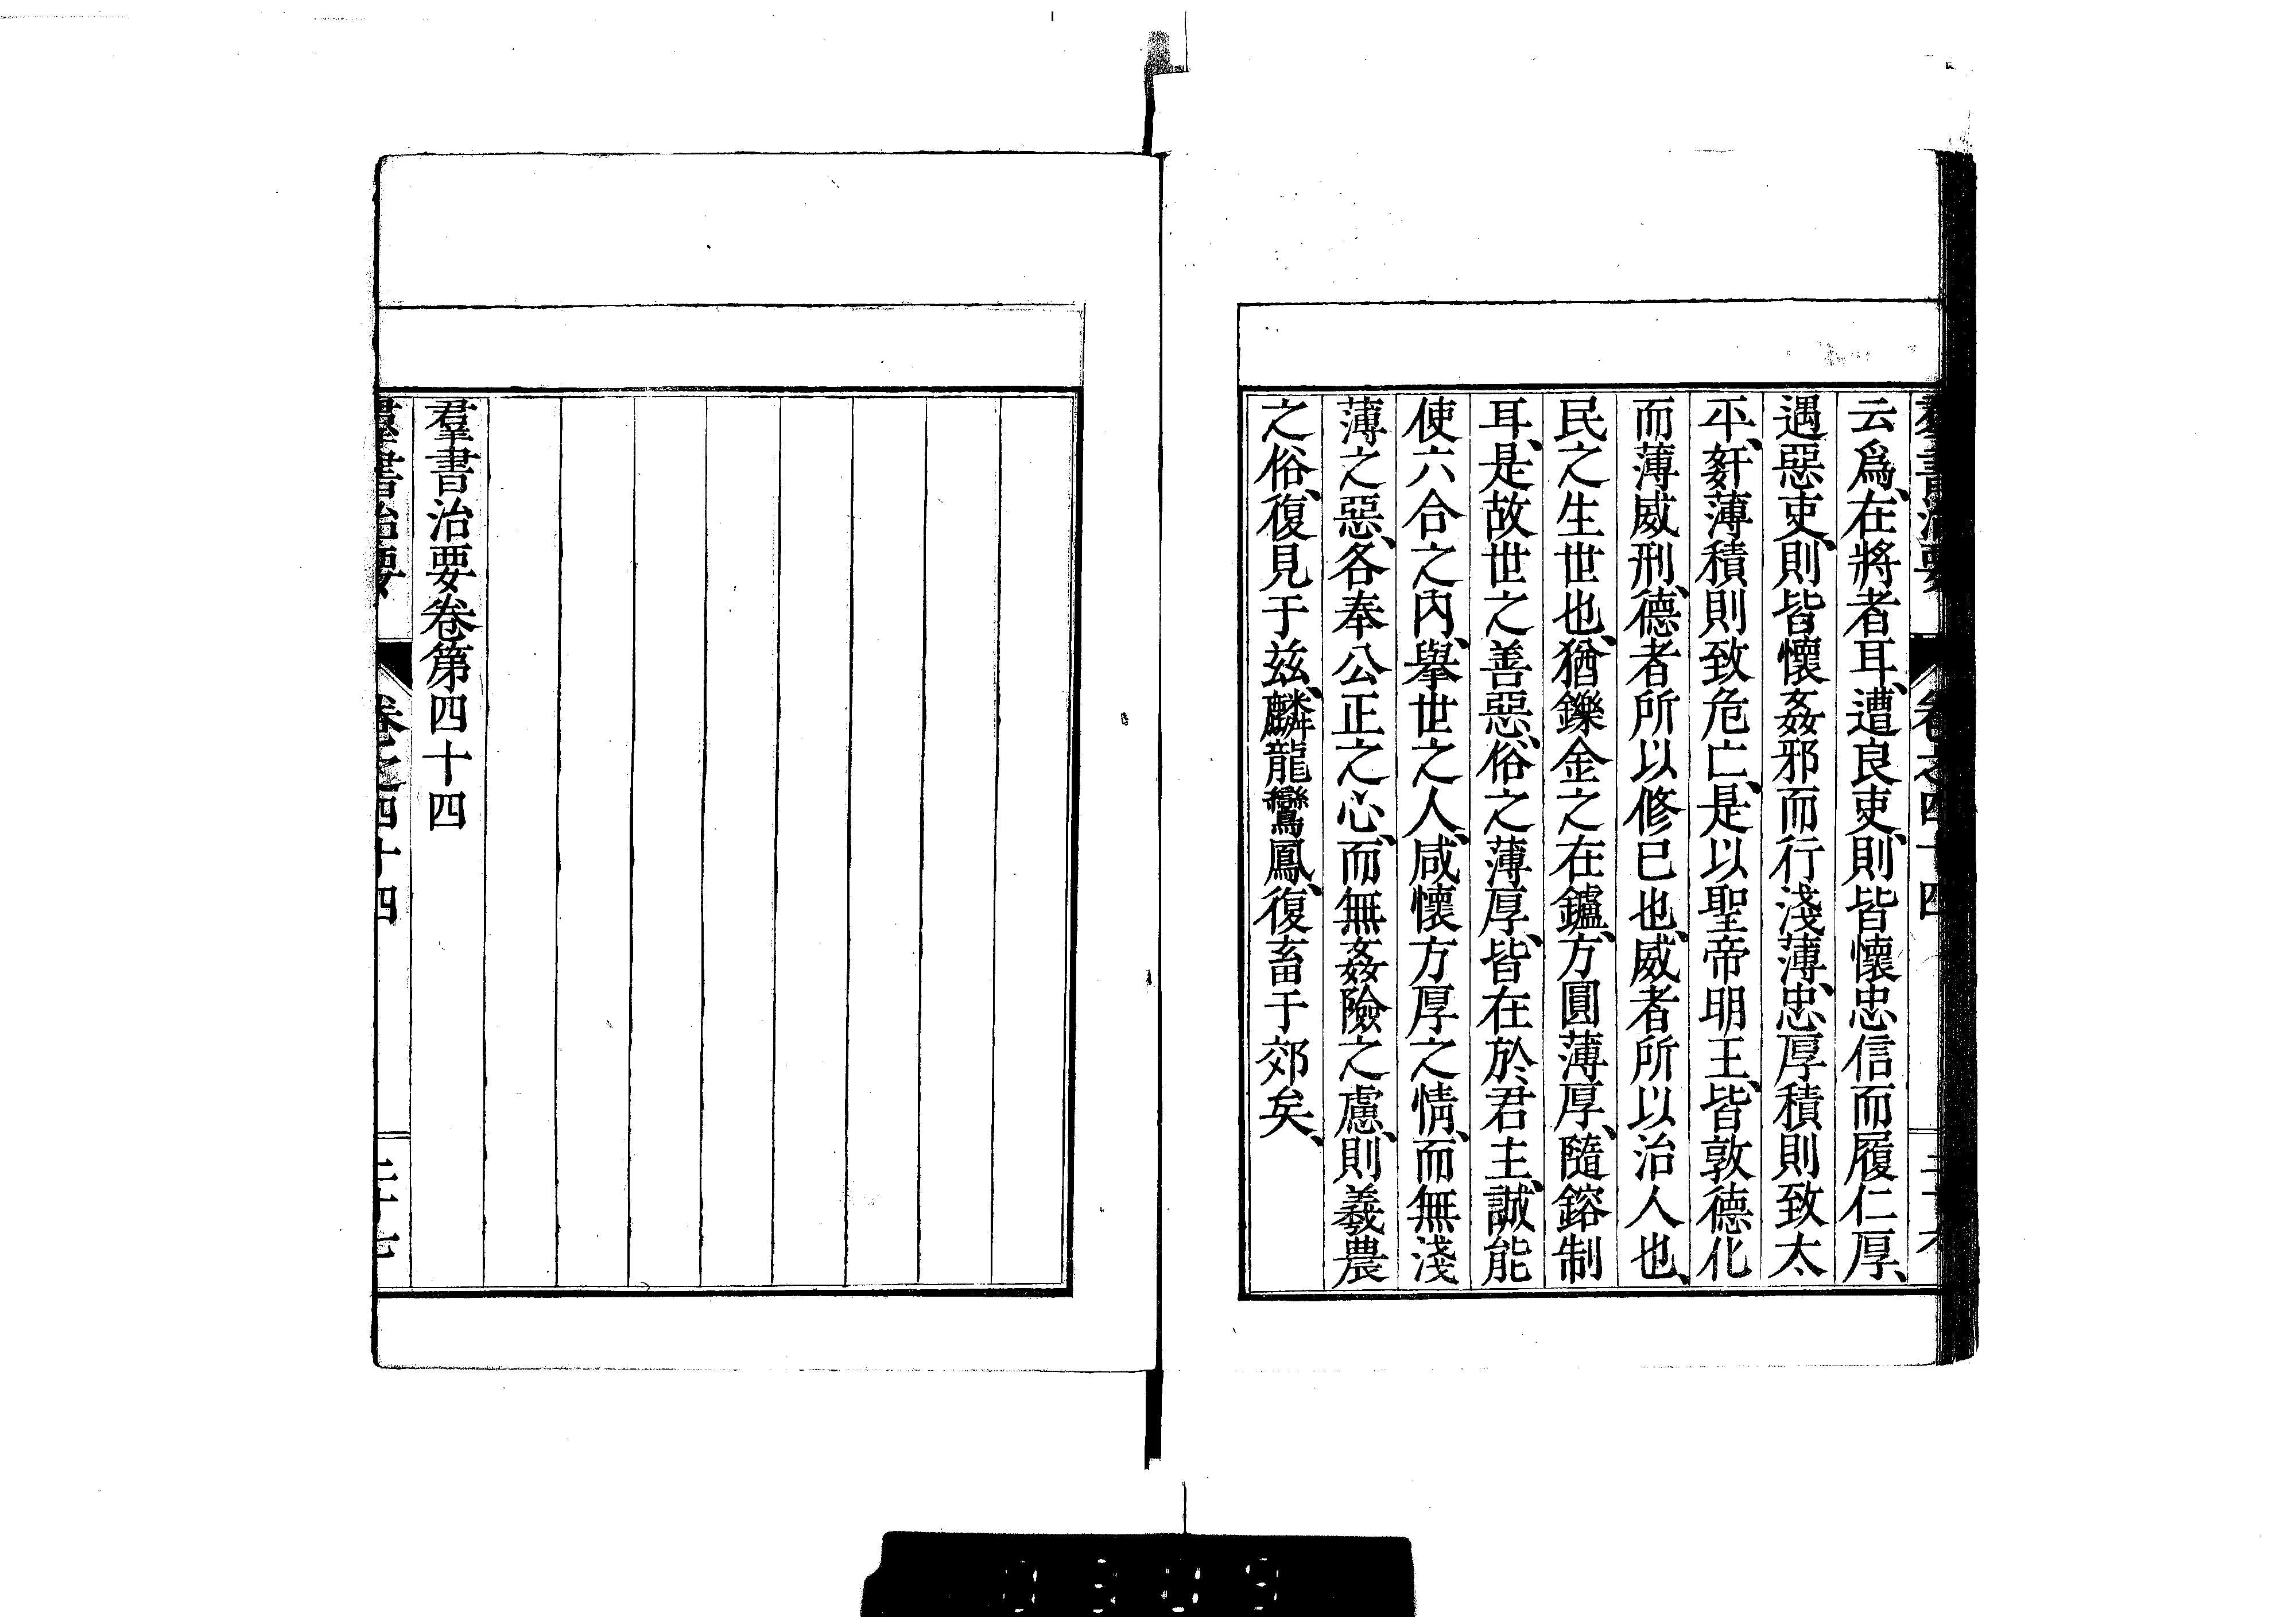 羣書治要 卷之四十四
云爲、在將者耳、遭良吏、則皆懷忠信而履仁厚、
遇惡吏、則皆懷姦邪而行淺薄、忠厚積則致太
平、姧薄積則致危亡、是以聖帝明王、皆敦德化
而薄威刑、德者所以修己也、威者所以治人也、
民之生世也、猶鑠金之在鑪、方圓薄厚、隨鎔制
耳、是故世之善惡、俗之薄厚、皆在於君主、誠能
使六合之內、擧世之人、咸懷方厚之情、而無淺
薄之惡、各奉公正之心、而無姦險之慮、則羲農
之俗、復見于茲、麟龍鸞鳳、復畜于郊矣、
羣書治要卷第四十四
羣書治要 卷之四十四 二十七
0309